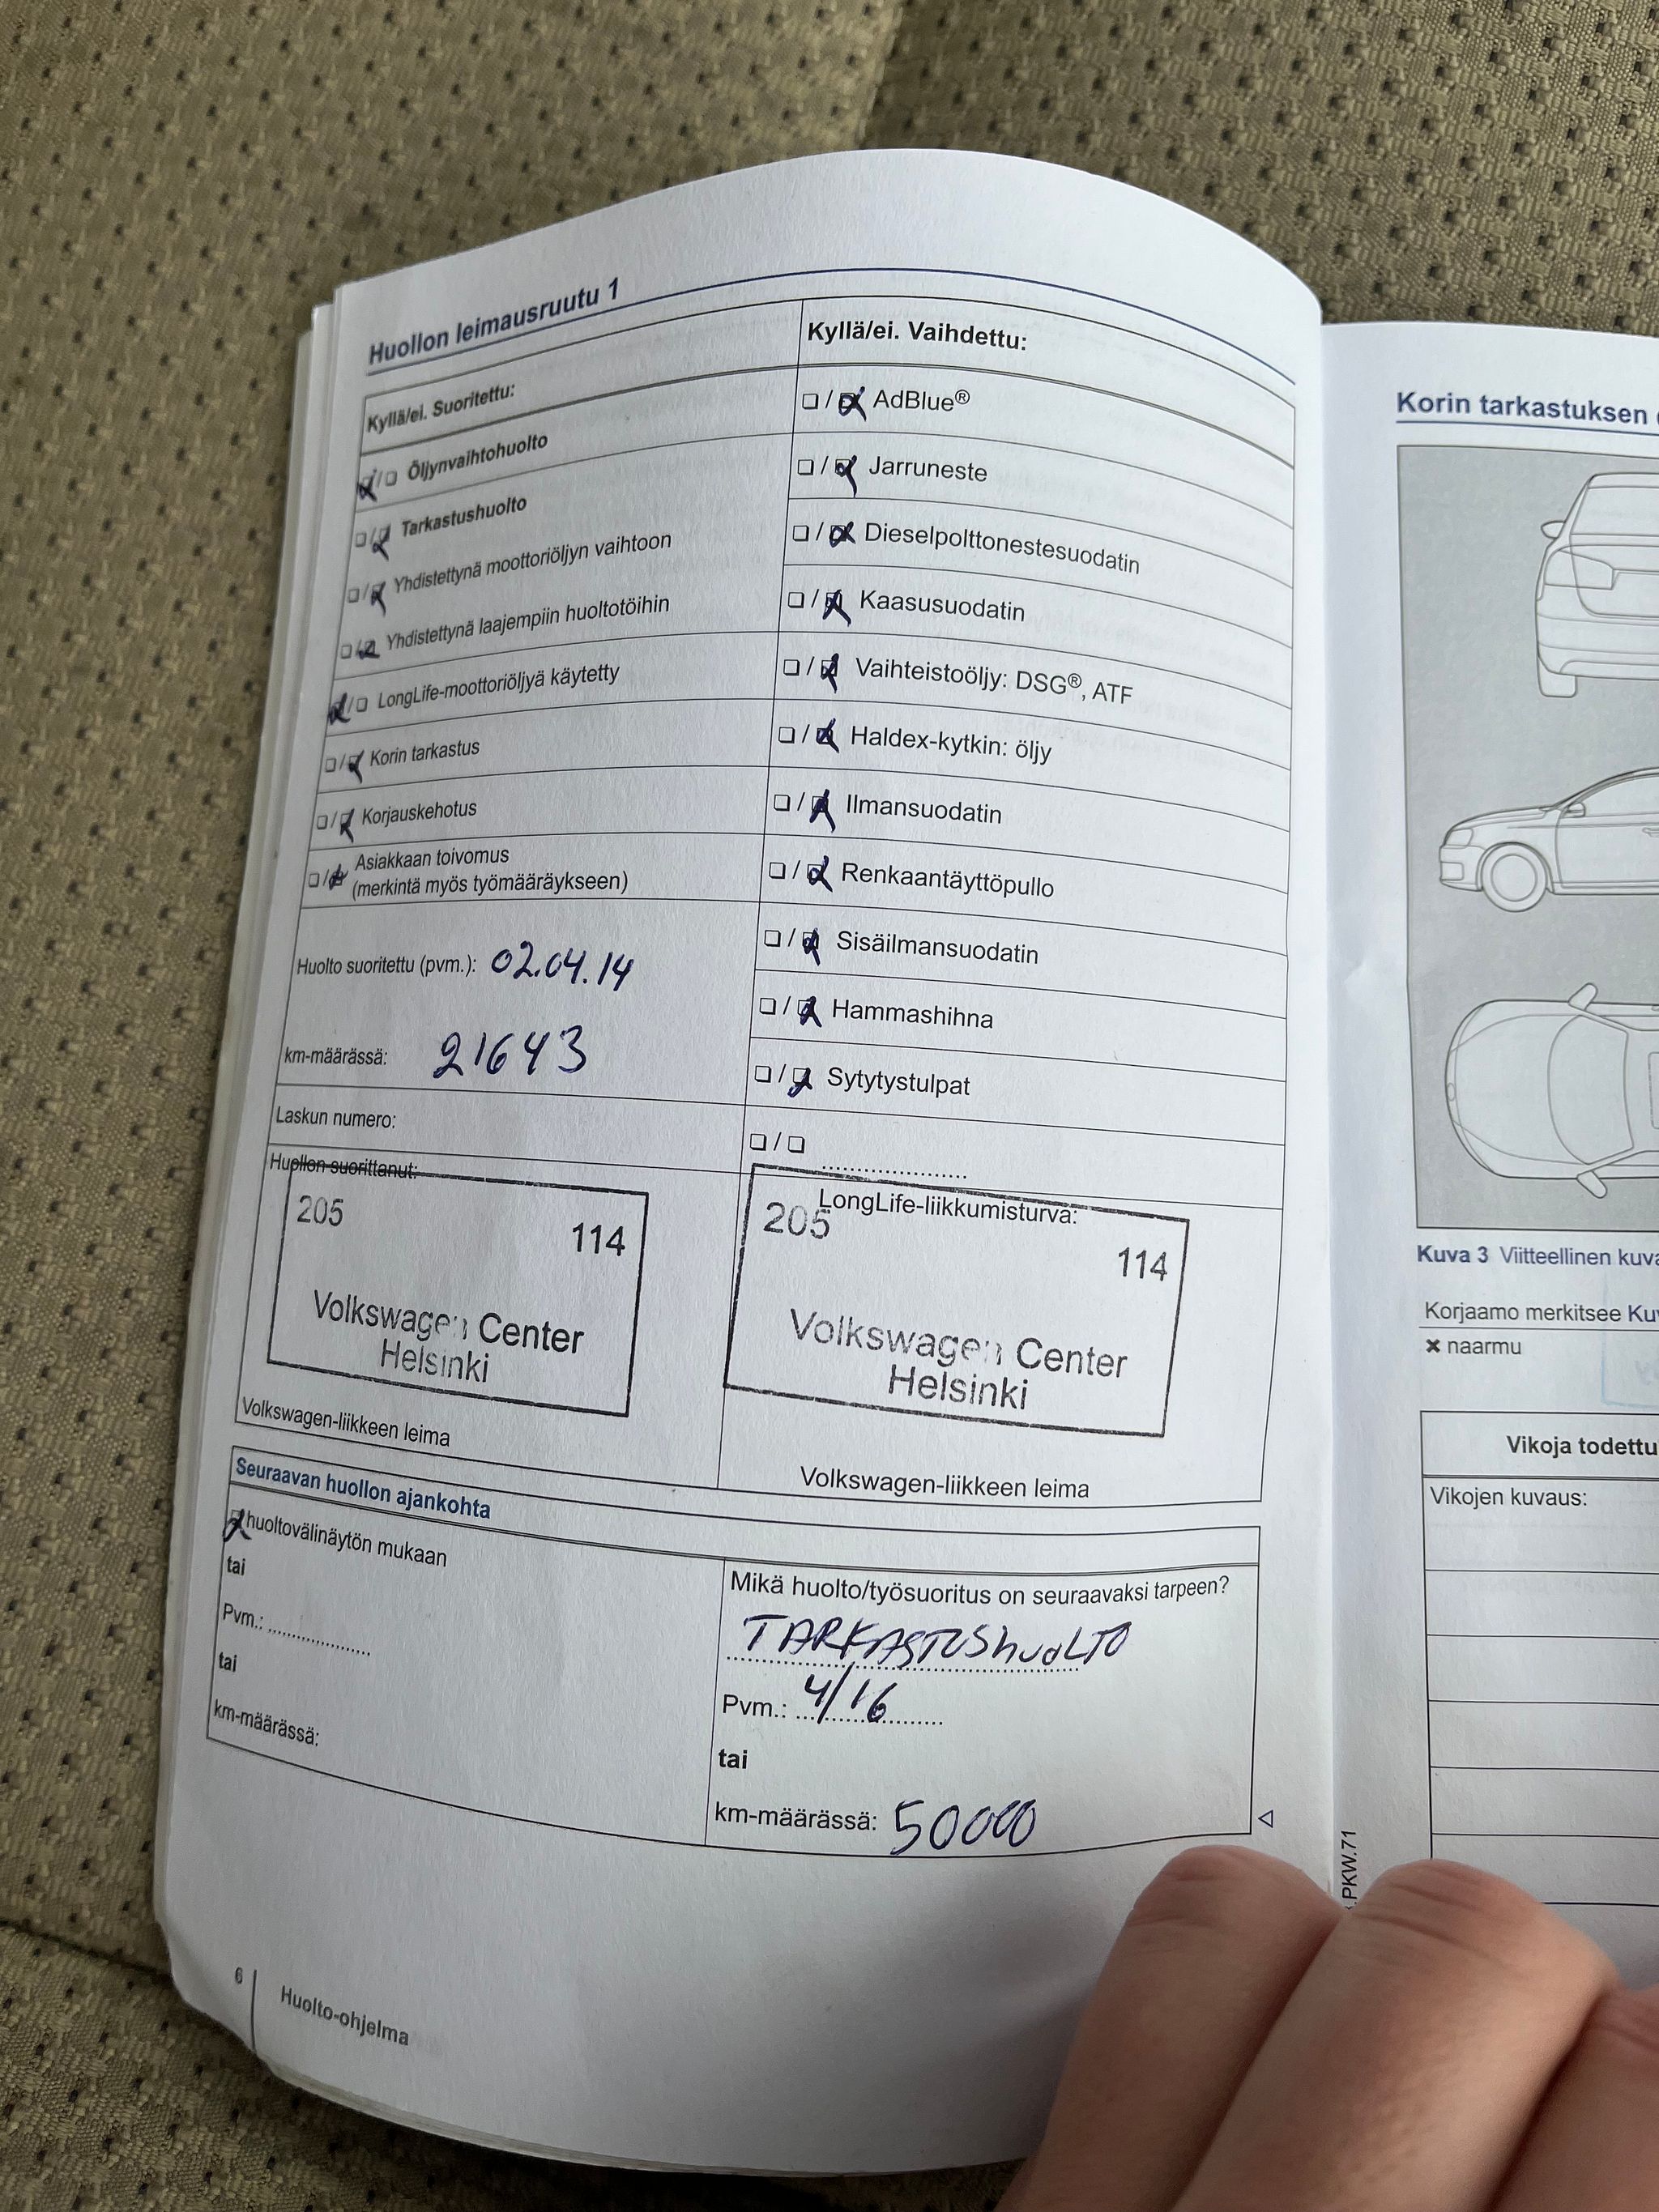 Huollon leimausruutu 1
Kyllä/ei. Suoritettu:
☒/☐ Öljynvaihtohuolto
☐/☒ Tarkastushuolto
☐/☒ Yhdistettynä moottoriöljyn vaihtoon
☐/☒ Yhdistettynä laajempiin huoltotöihin
☒/☐ LongLife-moottoriöljyä käytetty
☐/☒ Korin tarkastus
☐/☒ Korjauskehotus
☐/☒ Asiakkaan toivomus
(merkintä myös työmääräykseen)
Huolto suoritettu (pvm.): 02.04.14
km-määrässä: 21643
Laskun numero:
Huollon suorittanut:
205
114
Volkswagen Center
Helsinki
Volkswagen-liikkeen leima
Kyllä/ei. Vaihdettu:
☐/☒ AdBlue®
☐/☒ Jarruneste
☐/☒ Dieselpolttonestesuodatin
☐/☒ Kaasusuodatin
☐/☒ Vaihteistoöljy: DSG®, ATF
☐/☒ Haldex-kytkin: öljy
☐/☒ Ilmansuodatin
☐/☒ Renkaantäyttöpullo
☐/☒ Sisäilmansuodatin
☐/☒ Hammashihna
☐/☒ Sytytystulpat
☐/☐ .....................
LongLife-liikkumisturva:
205
114
Volkswagen Center
Helsinki
Volkswagen-liikkeen leima
Seuraavan huollon ajankohta
☒ huoltovälinäytön mukaan
tai
Pvm.: ...................
tai
km-määrässä:
Mikä huolto/työsuoritus on seuraavaksi tarpeen?
TARKASTUShuoLTO
Pvm.: 4/16
tai
km-määrässä: 50000
6 Huolto-ohjelma
Korin tarkastuksen
Kuva 3 Viitteellinen
Korjaamo merkitsee
× naarmu
Vikoja
Vikojen kuvaus:
.PKW.71